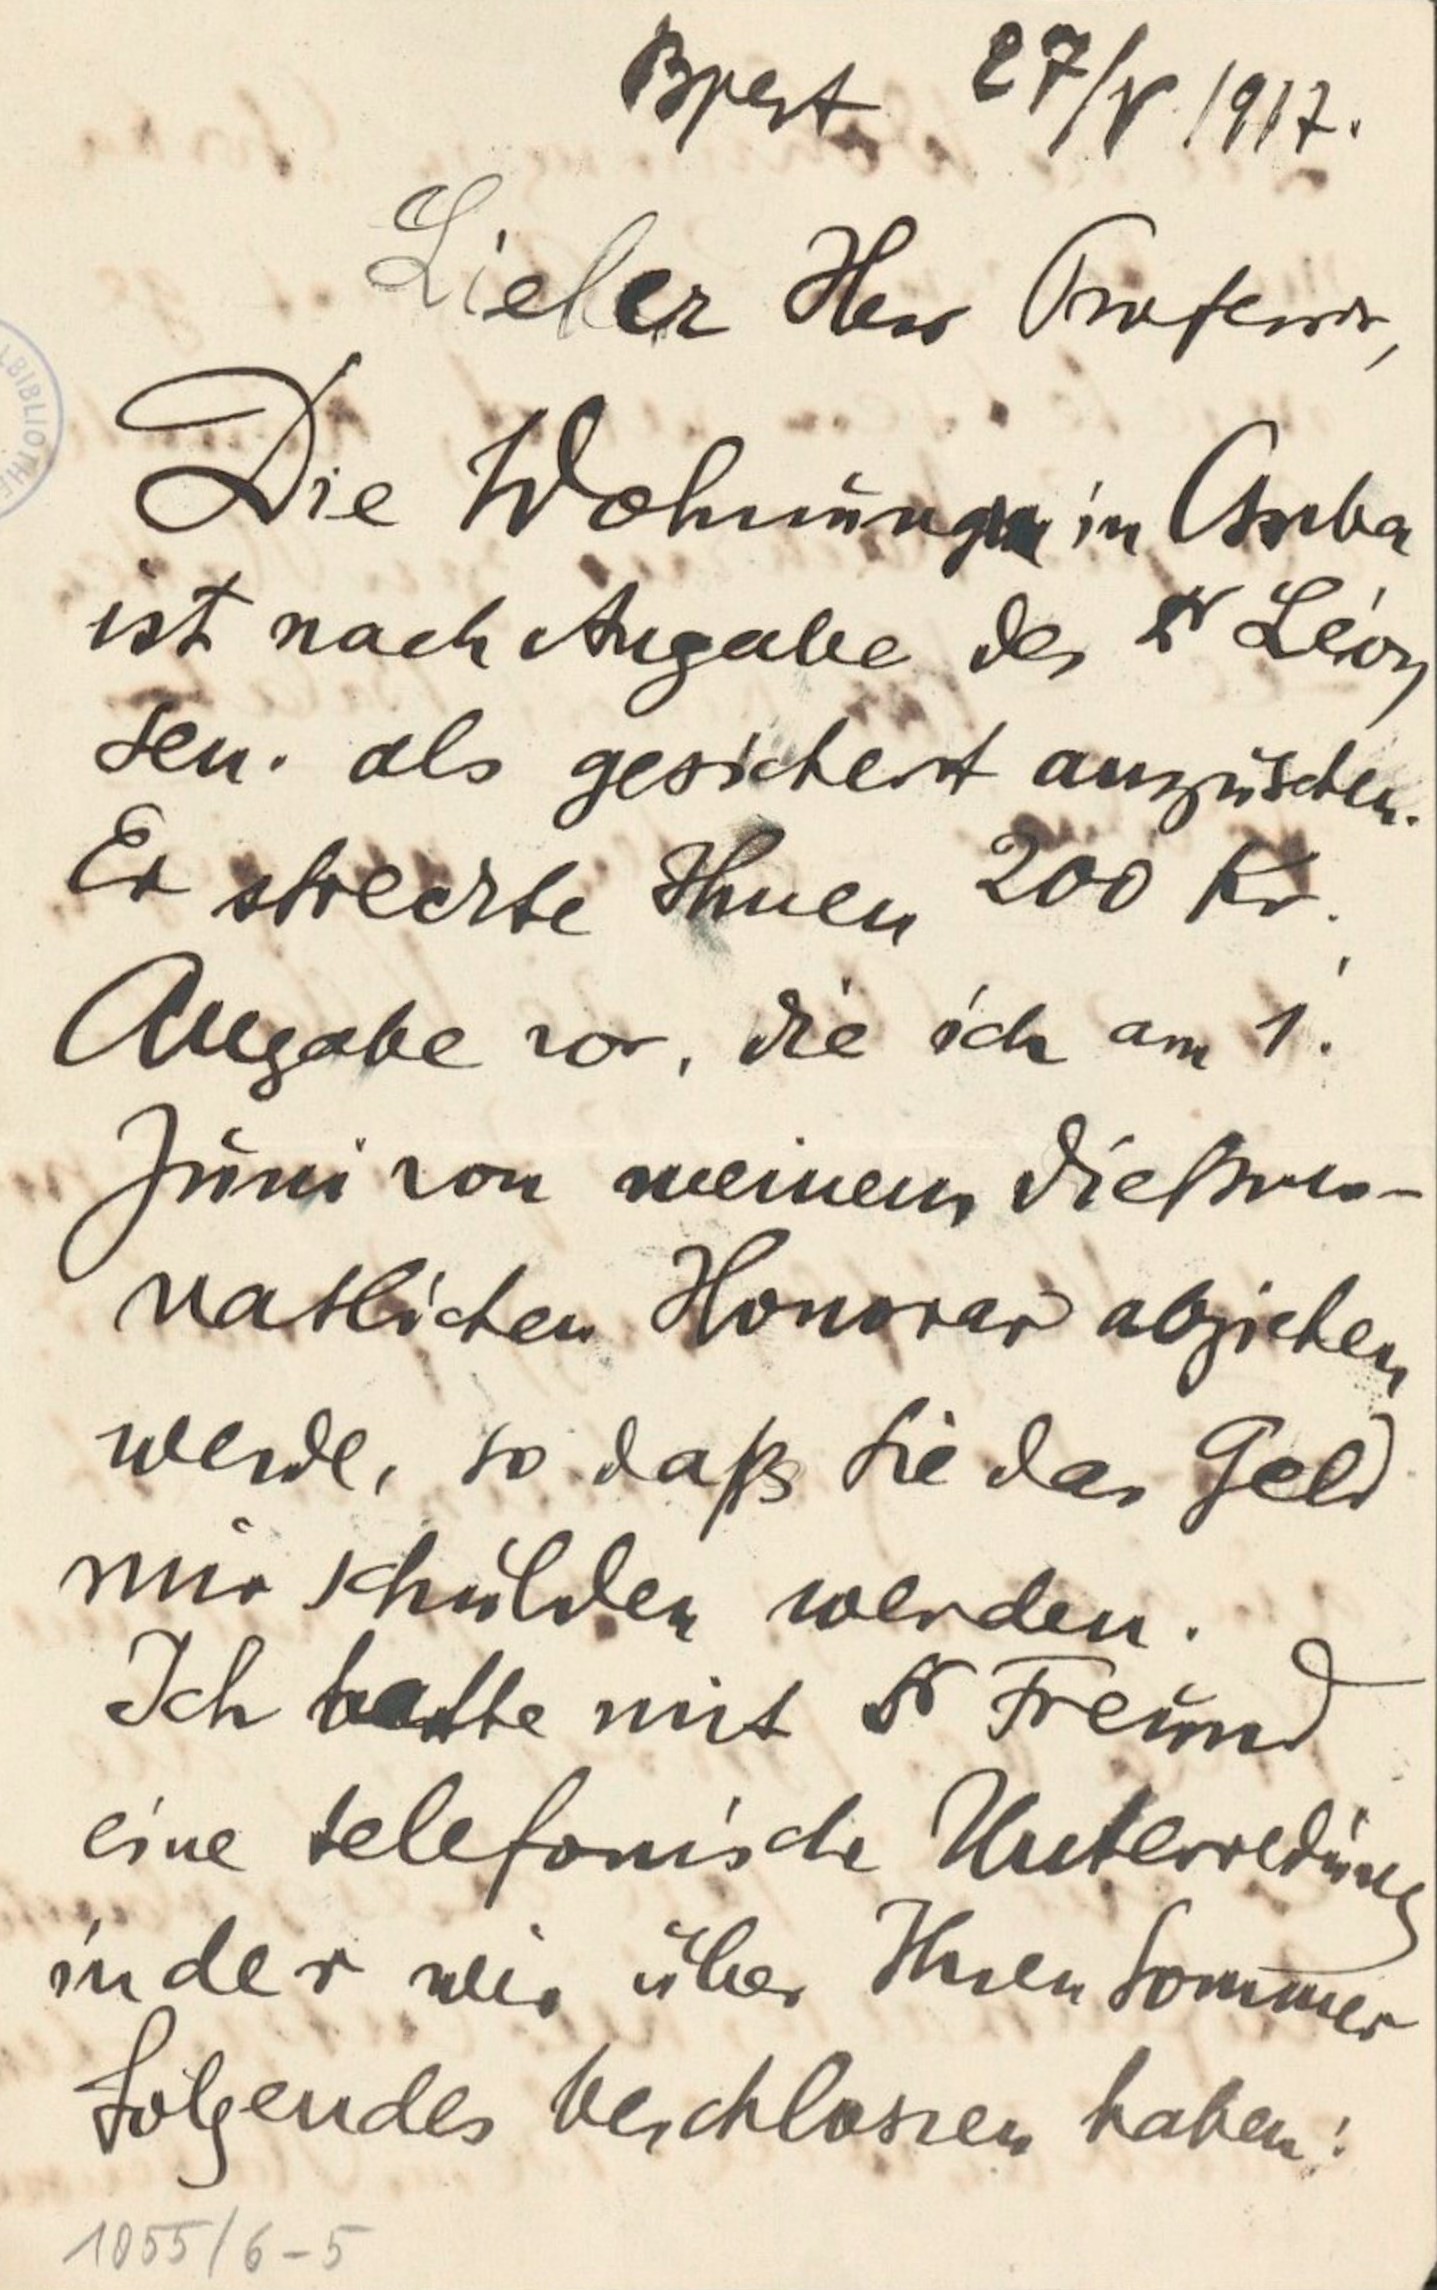 Bpest 27/V 1917.
Lieber Herr Professor,
Die Wohnung in Csorba
ist nach Angabe des Dr Lévy
sen. als gesichert anzusehen.
Er streckte Ihnen 200 Kr.
Angabe vor, die ich am 1.
Juni von meinem dießmo-
natlichen Honorar abziehen
werde, so daß Sie das Geld
mir schulden werden.
Ich hatte mit Dr Freund
eine telefonische Unterredung
in der wir über Ihren Sommer
folgendes beschlossen haben:
1055/6-5
BIBLIOTHE